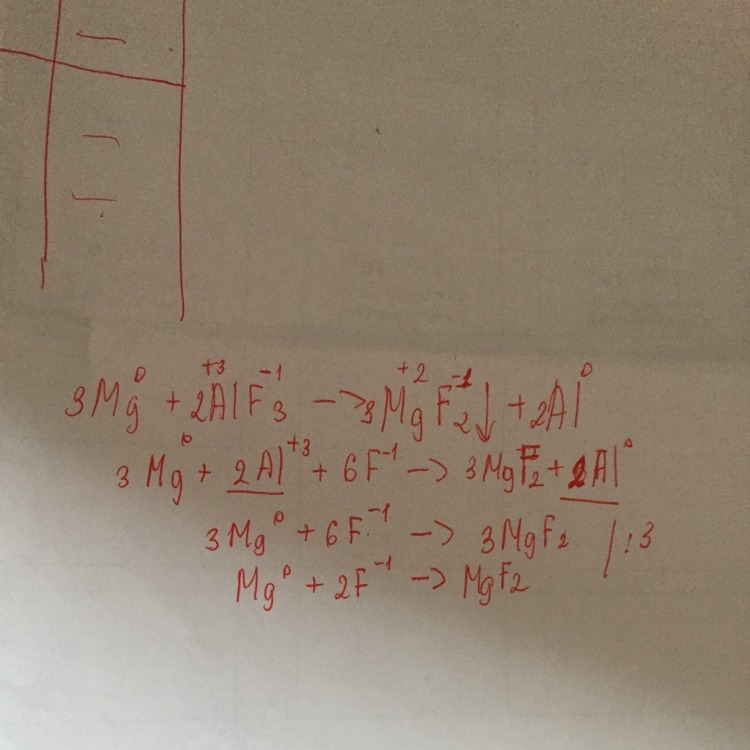 3Mg⁰ + 2Al⁺³F₃⁻¹ —> 3Mg⁺²F₂⁻¹↓ + 2Al⁰
3Mg⁰ + 2Al⁺³ + 6F⁻¹ —> 3MgF₂ + 2Al⁰
3Mg⁰ + 6F⁻¹ —> 3MgF₂ /:3
Mg⁰ + 2F⁻¹ —> MgF₂